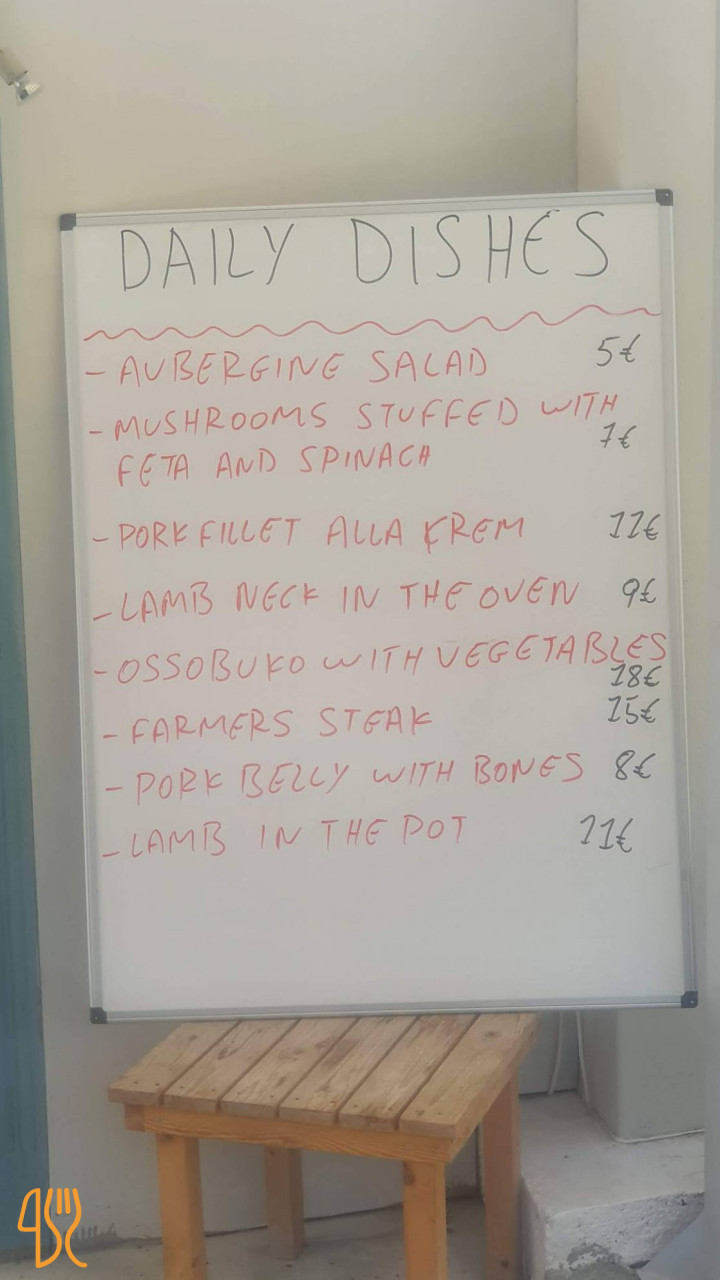 DAILY DISHES
- AUBERGINE SALAD 5€
- MUSHROOMS STUFFED WITH
FETA AND SPINACH 7€
- PORK FILLET ALLA KREM 11€
- LAMB NECK IN THE OVEN 9€
- OSSOBUKO WITH VEGETABLES
18€
- FARMERS STEAK 15€
- PORK BELLY WITH BONES 8€
- LAMB IN THE POT 11€